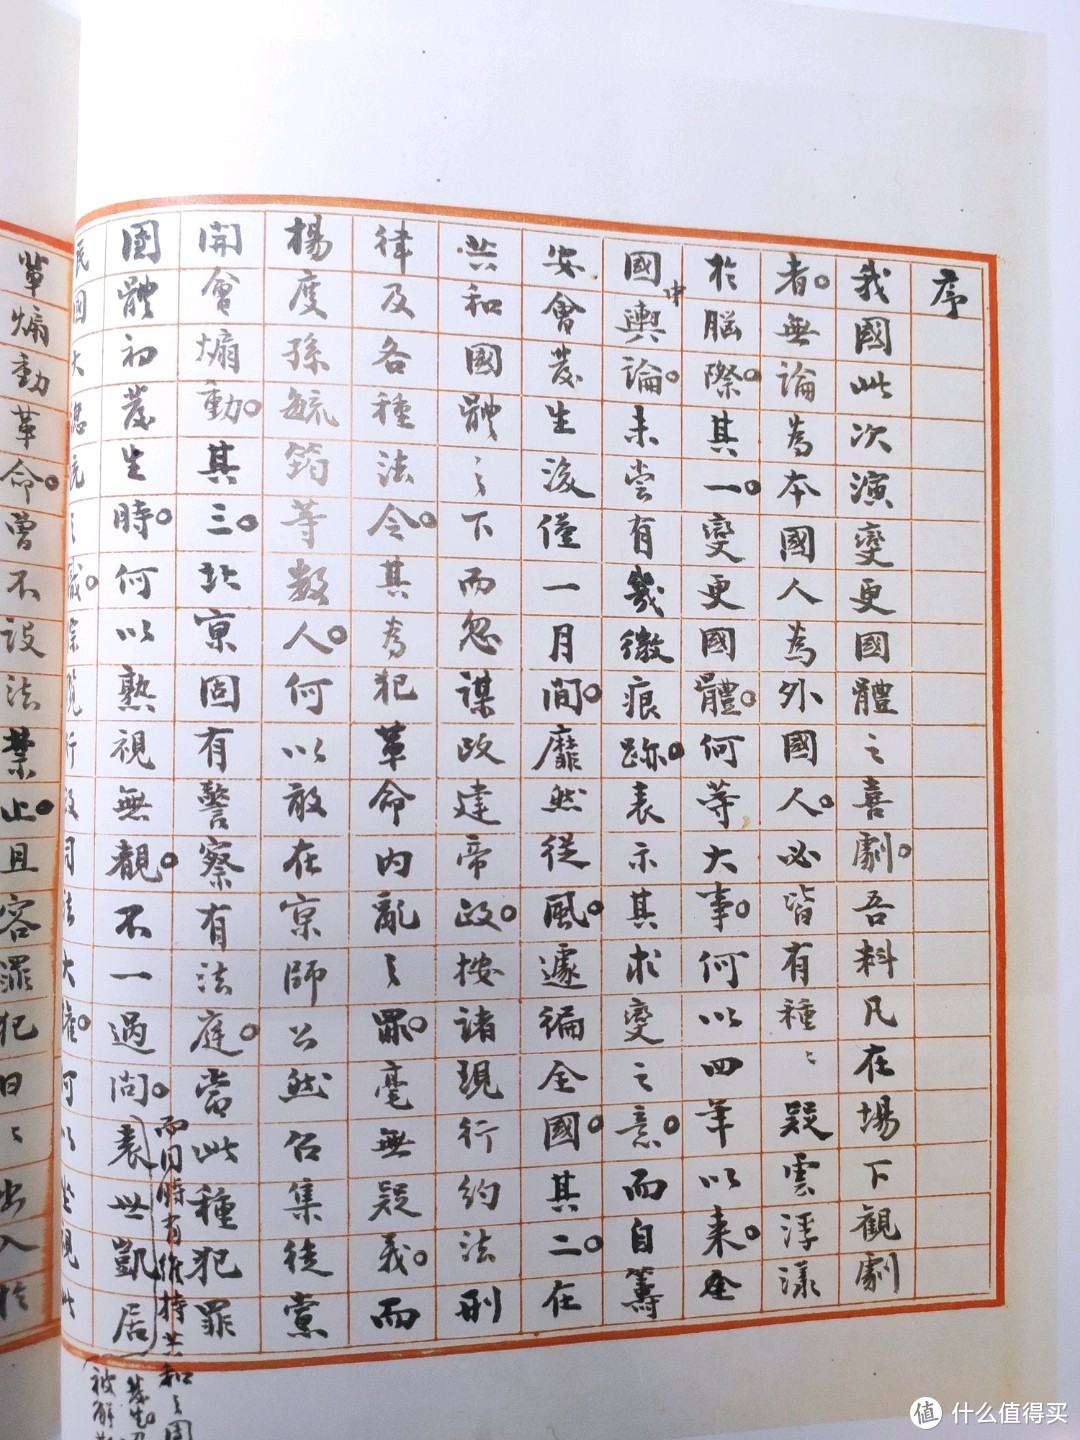 序
我國此次演變更國體之喜劇。吾料凡在場下觀劇
者。無論為本國人為外國人。必皆有種〻疑雲浮漾
於腦際。其一。變更國體。何等大事。何以四年以來。全
國中輿論。未嘗有幾微痕跡。表示其求變之意。而自籌
安會發生後僅一月間。靡然從風。遽徧全國。其二。在
共和國體之下而忽謀政建帝政。按諸現行約法刑
律及各種法令。其為犯革命內亂之罪。毫無疑義。而
楊度孫毓筠等數人。何以敢在京師公然召集徒黨
開會煽動。其三。北京固有警察有法庭。當此種犯罪
而同時有維持共和之團
團體初發生時。何以熟視無覩。不一過問。袁世凱居
發生
被解
民國大總統之職。綜攬行政司法大權。何以坐視此
輩煽動革命。曾不設法禁止。且容罪犯日〻出入於
值 什么值得买